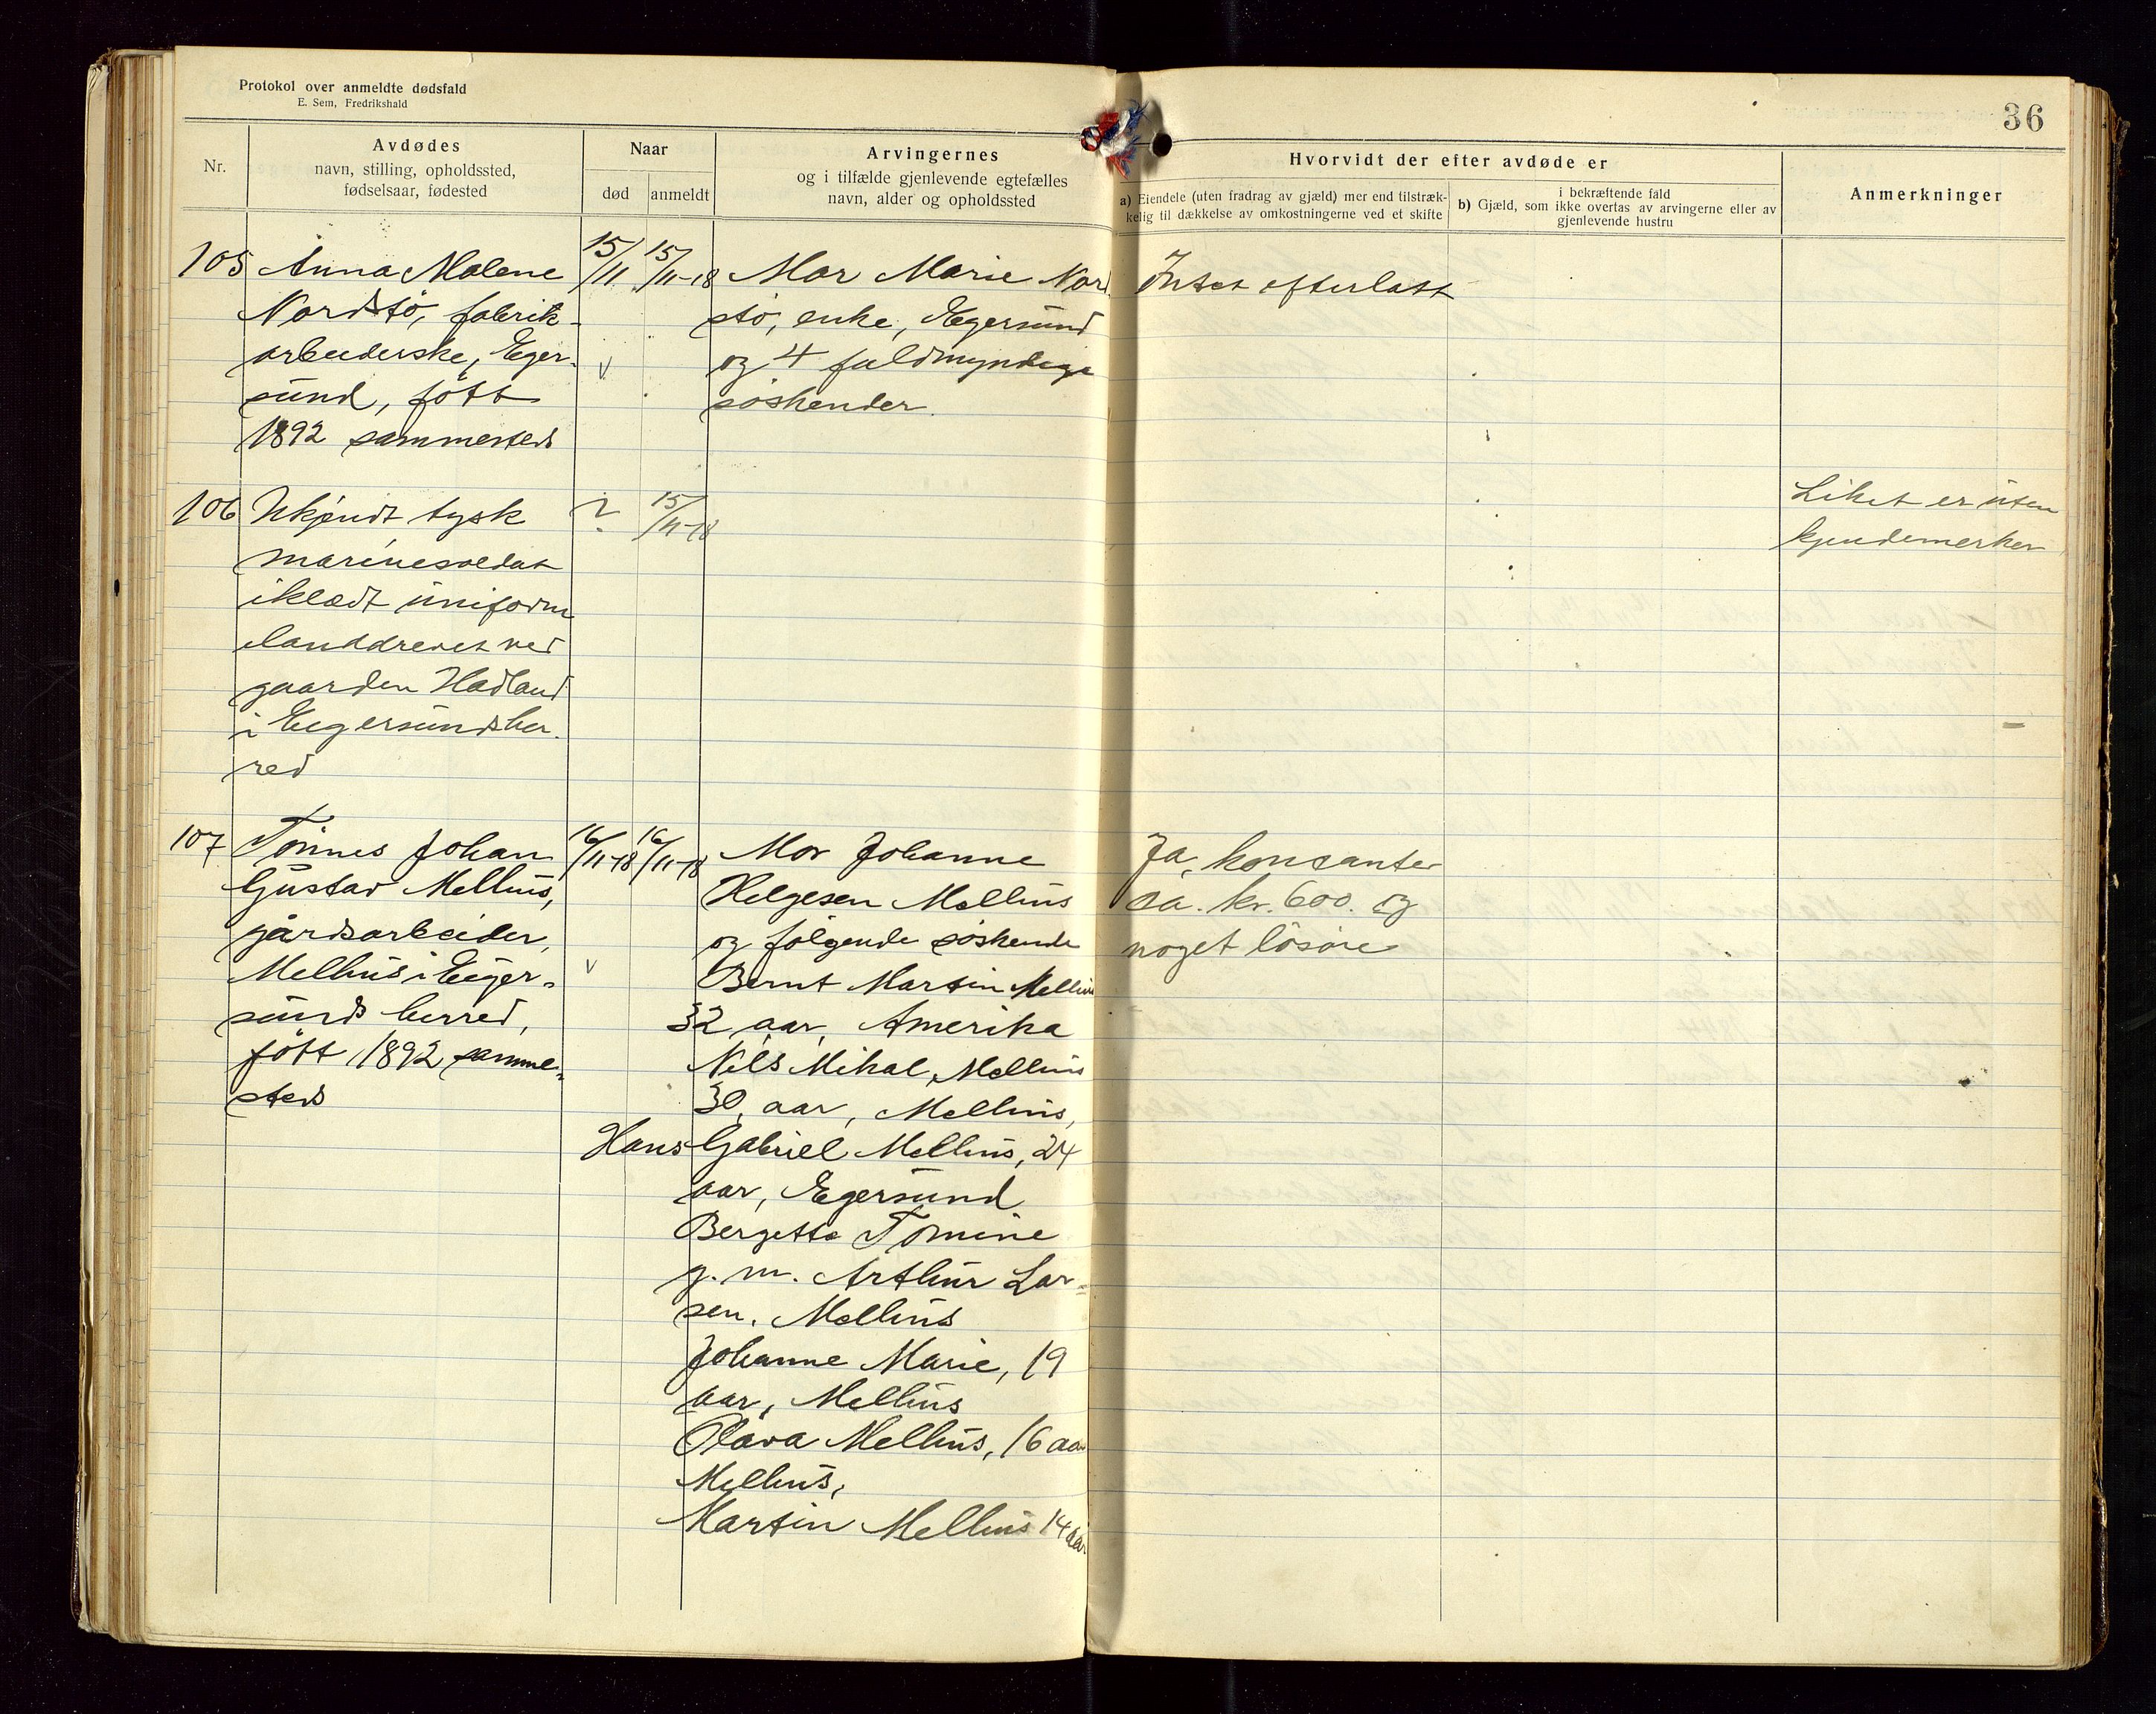 Protokol over anmeldte dødsfald
E. Sem, Fredrikshald
36
Nr.
Avdødes
navn, stilling, opholdssted,
fødselsaar, fødested
Naar
død
anmeldt
Arvingernes
og i tilfælde gjenlevende egtefælles
navn, alder og opholdssted
Hvorvidt der efter avdøde er
a) Eiendele (uten fradrag av gjæld) mer end tilstræk-
kelig til dækkelse av omkostningerne ved et skifte
i bekræftende fald
b) Gjæld, som ikke overtas av arvingerne eller av
gjenlevende hustru
Anmerkninger
105
Anna Malene
Nordstö, fabrik-
arbeiderske, Eger-
sund, født
1892 sammesteds
15/11
15/11-18
Mor Marie Nord
stö, enke, Egersund
og 4 fuldmyndige
søskender.
Intet efterlatt
106
Ukjendt tysk
marinesoldat
iklædt uniform
ilanddrevet ved
gaarden Hadland
i Eigersundsher-
red
?
15/11-18
Liket er uten
kjendemerker
107
Tönnes Johan
Gustav Mellhus,
gårdsarbeider,
Mellhus i Eiger-
sunds herred,
född 1892 samme-
steds
16/11-18
16/11-18
Mor Johanne
Helgesen Mellhus
og følgende søskende
Bernt Martin Mellhus
32 aar, Amerika
Nils Mikal Mellhus
30 aar, Mellhus,
Hans Gabriel Mellhus, 24
aar, Egersund
Bergette Tomine
g. m. Arthur Lar-
sen, Mellhus
Johanne Marie, 19
aar, Mellhus
Olava Mellhus, 16 aar
Mellhus,
Martin Mellhus 14 aar
Ja, kontanter
ca. kr. 600. og
noget lösöre